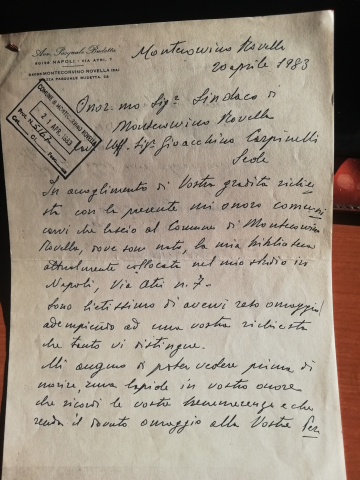 Avv. Pasquale Budetta
80132 NAPOLI - VIA ATRI, 7
84096 MONTECORVINO ROVELLA (SA)
PIAZZA PASQUALE BUDETTA, 26
Montecorvino Rovella
20 aprile 1983
COMUNE DI MONTECORVINO ROVELLA
21 APR. 1983
Onor.mo Sig.r Sindaco di
Montecorvino Rovella
Uff. Sig. Gioacchino Carpinelli
Sede
In accoglimento di Vostra gradita richie
sta con la presente mi onoro comuni
carvi che lascio al Comune di Montecorvino
Rovella, dove sono nato, la mia biblioteca
attualmente collocata nel mio studio in
Napoli, Via Atri n. 7.-
Sono lietissimo di avervi reso omaggio
adempiendo ad una vostra richiesta
che tanto vi distingue.
Mi auguro di poter vedere prima di
morire, una lapide in vostro onore
che ricordi le vostre benemerenze e che
renda il dovuto omaggio alla Vostra Per